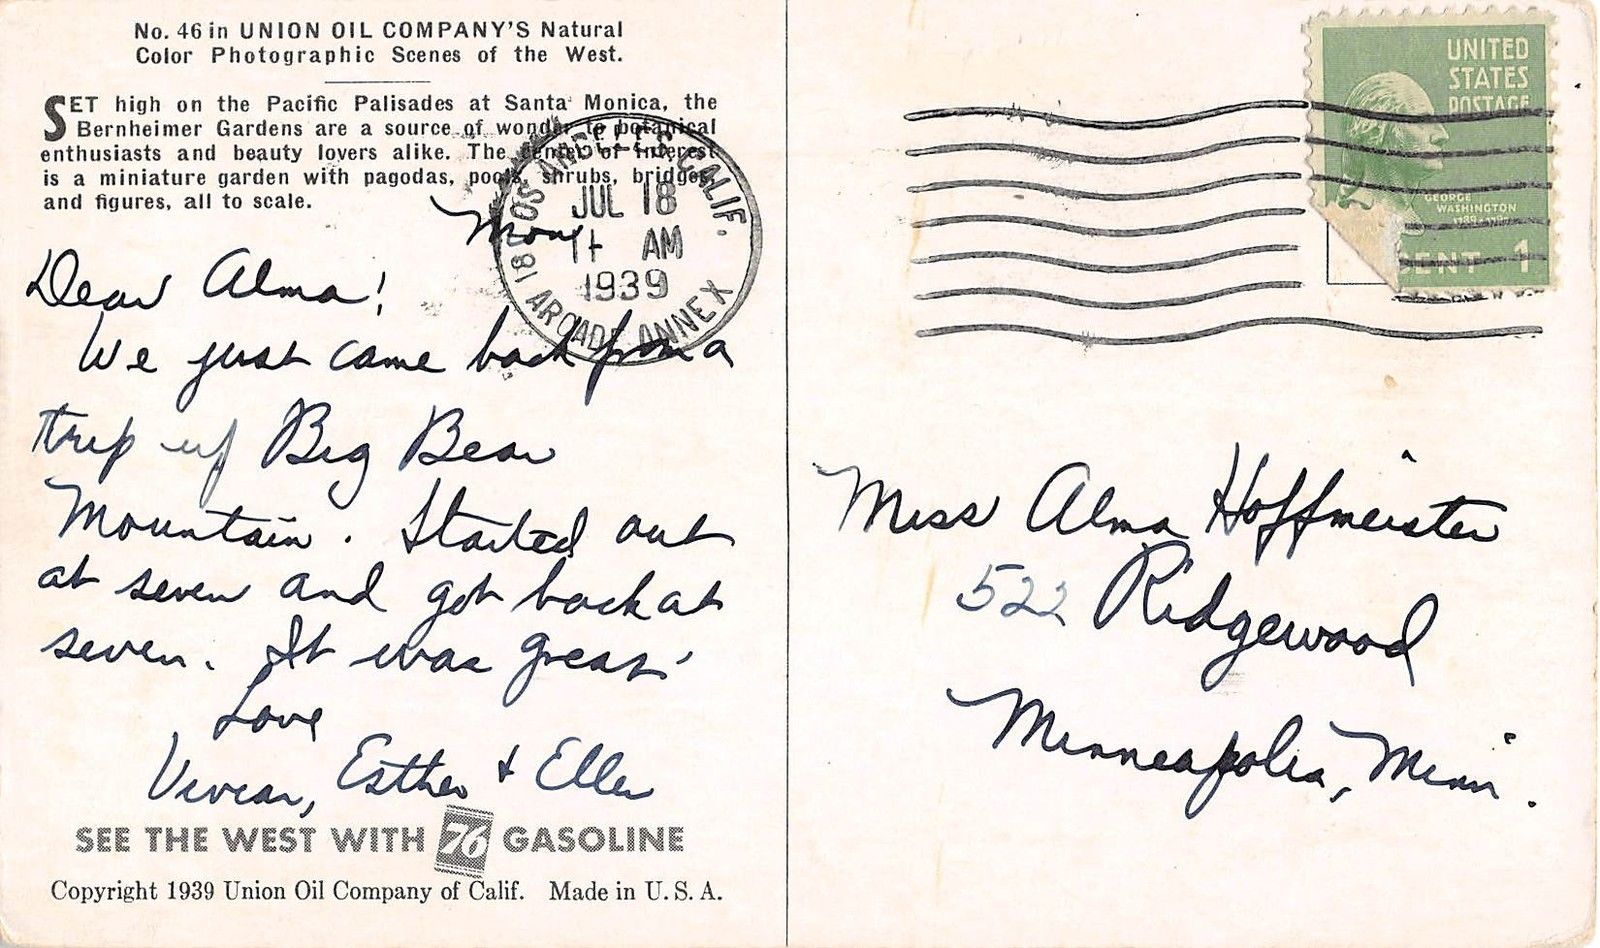 No. 46 in UNION OIL COMPANY'S Natural
Color Photographic Scenes of the West.
SET high on the Pacific Palisades at Santa Monica, the
Bernheimer Gardens are a source of wonder to botanical
enthusiasts and beauty lovers alike. The center of interest
is a miniature garden with pagodas, pools, shrubs, bridges,
and figures, all to scale.
LOS ANGELES, CALIF.
JUL 18
11 AM
1939
ARCADE ANNEX
Mon.
Dear Alma!
We just came back from a
trip up Big Bear
Mountain. Started out
at seven and got back at
seven. It was great.
Love
Vivian, Esther + Ellen
SEE THE WEST WITH 76 GASOLINE
Copyright 1939 Union Oil Company of Calif. Made in U. S. A.
UNITED
STATES
POSTAGE
GEORGE
WASHINGTON
CENT 1
Miss Alma Hoffmeister
522 Ridgewood
Minneapolis, Minn.